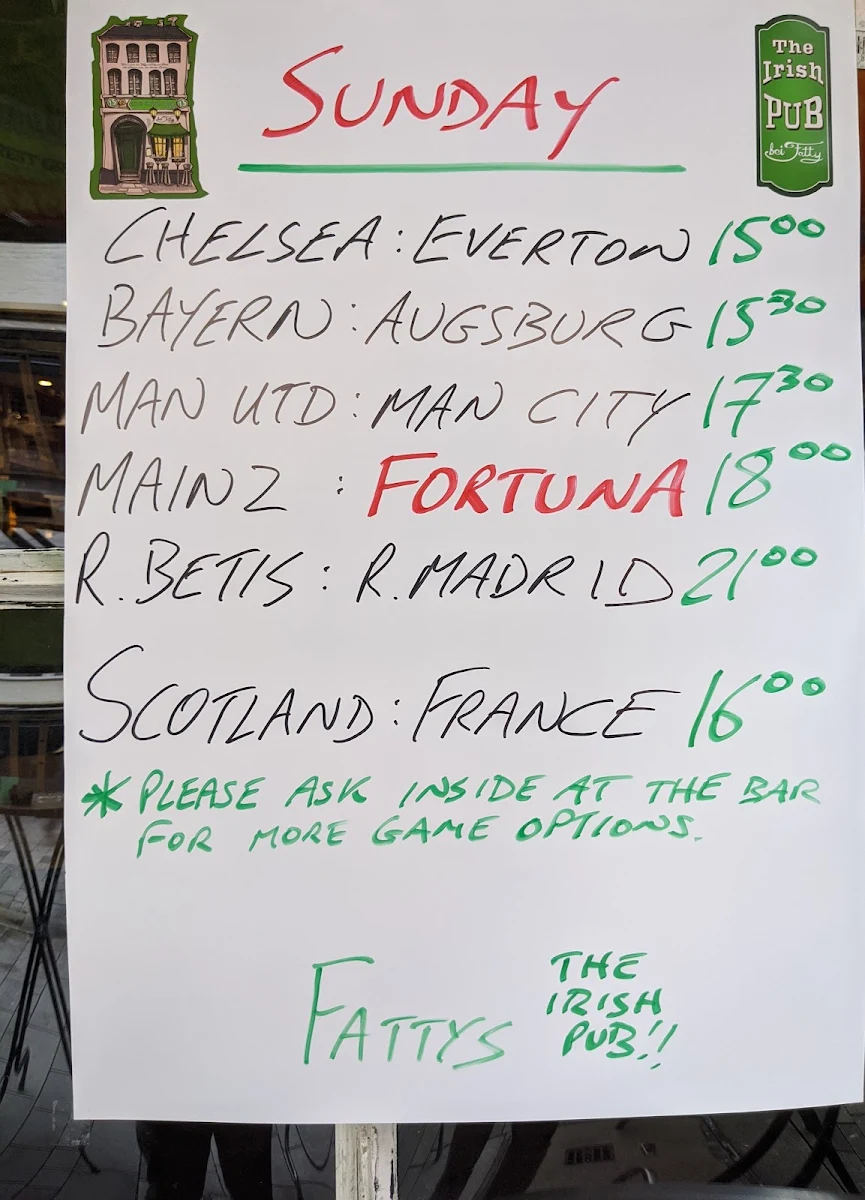 SUNDAY
The
Irish
PUB
bei Fatty
CHELSEA : EVERTON 15⁰⁰
BAYERN : AUGSBURG 15³⁰
MAN UTD : MAN CITY 17³⁰
MAINZ : FORTUNA 18⁰⁰
R. BETIS : R. MADRID 21⁰⁰
SCOTLAND : FRANCE 16⁰⁰
* PLEASE ASK INSIDE AT THE BAR
FOR MORE GAME OPTIONS.
FATTYS
THE
IRISH
PUB!!